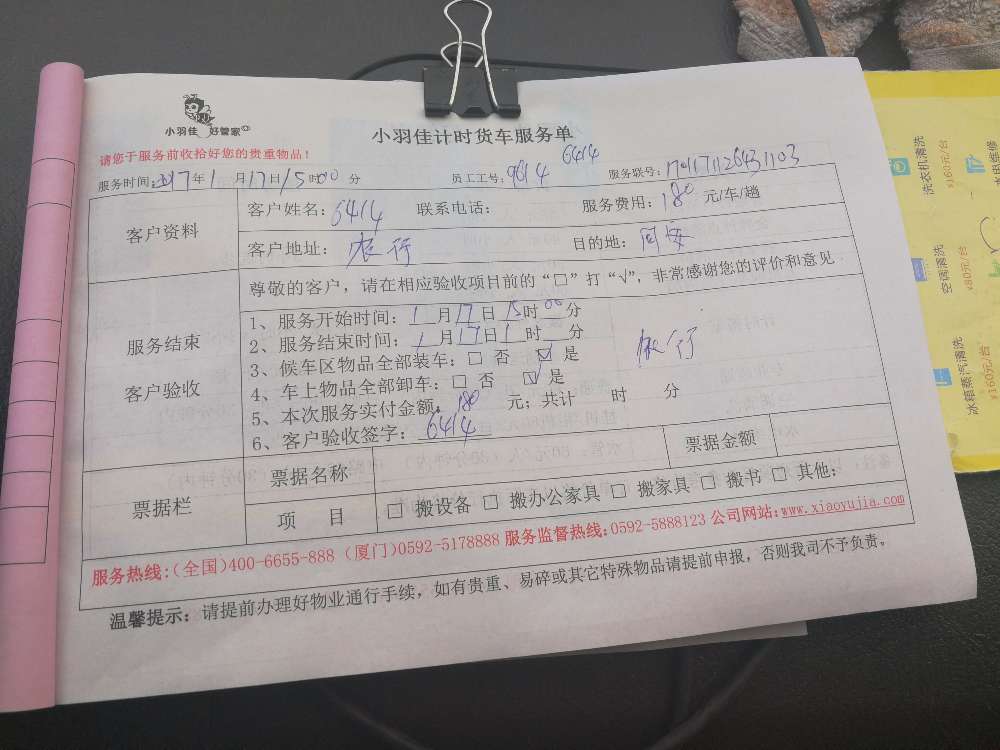 小羽佳 好管家
小羽佳计时货车服务单
请您于服务前收拾好您的贵重物品！
6414
服务时间：2017年1月17日15时00分 员工工号：9614 服务联号：
客户资料 客户姓名：6414 联系电话： 服务费用：180元/车/趟
客户地址：农行 目的地：同安
服务结束
客户验收
尊敬的客户，请在相应验收项目前的“□”打“√”，非常感谢您的评价和意见
1、服务开始时间：1月17日15时00分
2、服务结束时间：1月17日1时 分
3、候车区物品全部装车：□ 否 ☑ 是
4、车上物品全部卸车：□ 否 ☑ 是
农行
5、本次服务实付金额，180元；共计 时 分
6、客户验收签字：6414
票据栏 票据名称 票据金额
项 目 □ 搬设备 □ 搬办公家具 □ 搬家具 □ 搬书 □ 其他：
服务热线：（全国）400-6655-888（厦门）0592-5178888 服务监督热线：0592-5888123 公司网站：www.xiaoyujia.com
温馨提示：请提前办理好物业通行手续，如有贵重、易碎或其它特殊物品请提前申报，否则我司不予负责。
洗衣机清洗
¥160元/台
空调清洗
¥80元/台
冰箱蒸汽清洗
¥160元/台